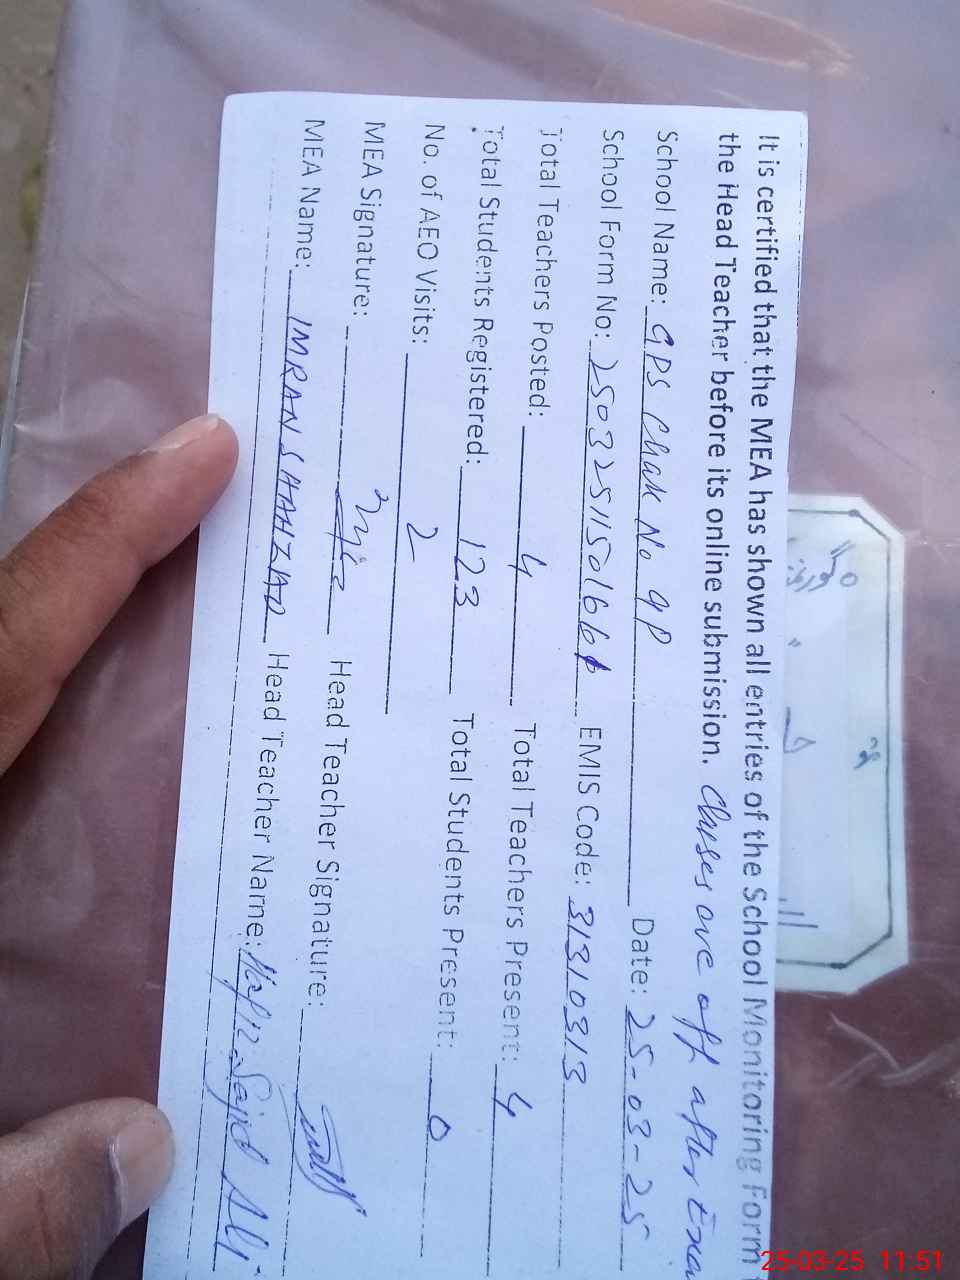 It is certified that the MEA has shown all entries of the School Monitoring Form
the Head Teacher before its online submission. Classes are off after Exa
School Name: GPS Chak No 9P Date: 25-03-25
School Form No: EMIS Code: 31310313
Total Teachers Posted: 4 Total Teachers Present: 4
Total Students Registered: 123 Total Students Present: 0
No. of AEO Visits: 2
MEA Signature: Head Teacher Signature:
MEA Name: IMRAN SHAHZAD Head Teacher Name: Hafiz Sajid Ali
25-03-25 11:51